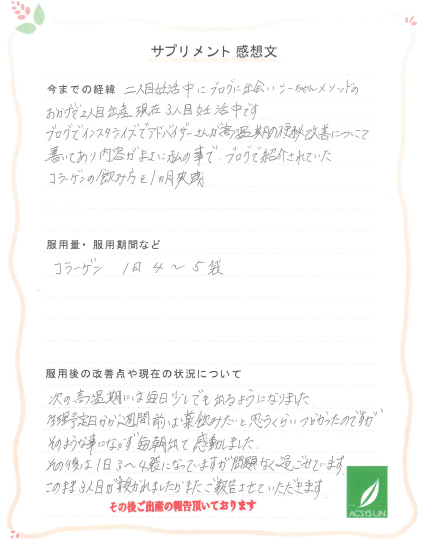 サプリメント 感想文
今までの経緯 二人目妊活中にブログに出会い こーちゃんメソッドの
おかげで2人目出産 現在3人目妊活中です
ブログでインスタライブでアドバイザーさんが高温期の便秘改善について
書いてあり内容がまさに私の事で、ブログで紹介されていた
コラーゲンの飲み方を1ヵ月実践
服用量・服用期間など
コラーゲン 1日 4〜5錠
服用後の改善点や現在の状況について
次の高温期には毎日少しでも出るようになりました
生理予定日から1週間前は薬飲みたいと思うくらいつらかったのですが
そのような事にならず毎朝出て感動しました
その後は1日3〜4錠になっていますが問題なく過ごせています
このまま3人目が授かれましたらまたご報告させていただきます
その後ご出産の報告頂いております
ACSYSUN